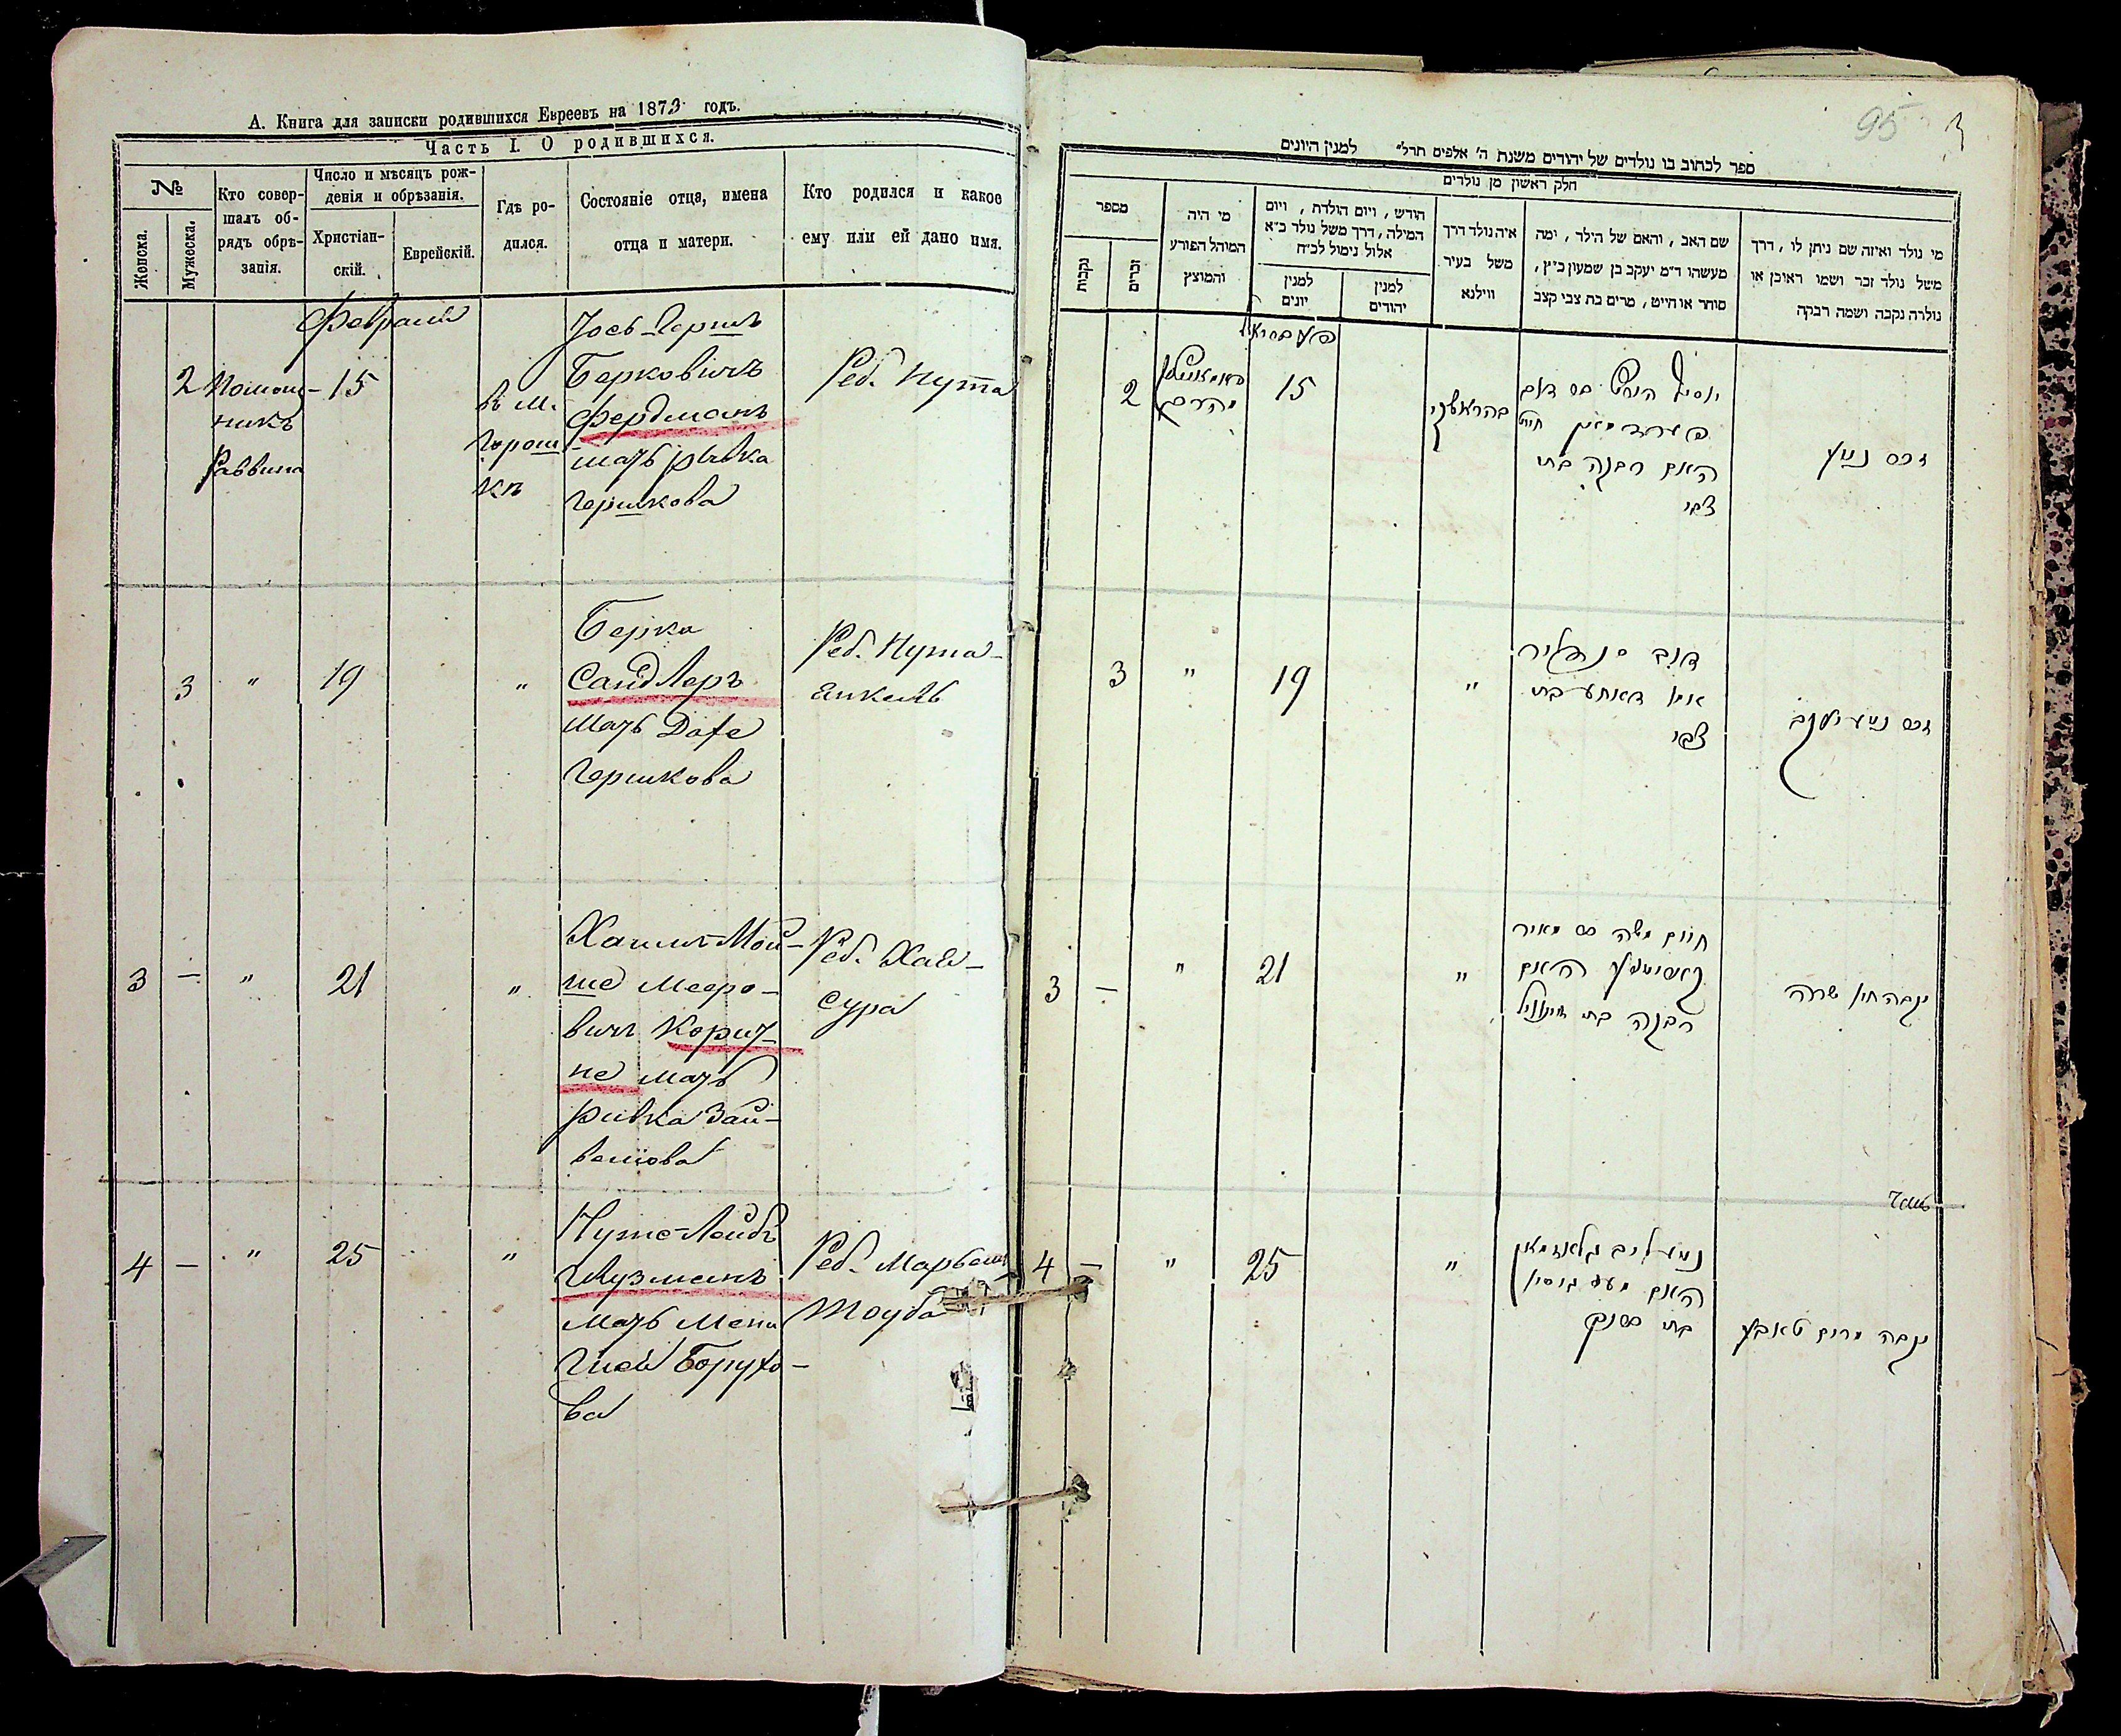 А. Книга для записки родившихся Евреевъ на 1873 годъ.
Часть I. О родившихся.
№
Женска.
Мужеска.
Кто совер-
шалъ об-
рядъ обрѣ-
занія.
Число и мѣсяцъ рож-
денія и обрѣзанія.
Христіан-
скій.
Еврейскій.
Гдѣ ро-
дился.
Состояніе отца, имена
отца и матери.
Кто родился и какое
ему или ей дано имя.
Февраля
2
Помощ-
никъ
Раввина
15
въ м.
Горош
кѣ
Іось-Гершъ
Берковичъ
Фердманъ
мать Рывка
Гершкова
Реб. Нута
3
"
19
"
Берка
Сандлеръ
мать
Гершкова
Реб. Нута-
Янкель
3
—
"
21
"
Хаимъ-Мой-
ше Мееро-
вичъ
не мать
Ривка Зай-
велiова
Реб. Хая-
сура
4
—
"
25
"
Нута-Лейбъ
Глузманъ
мать Мени
Гисей Борухо-
ва
Реб. Марьем
Тоуба
95
3
ספר לכתוב בו נולדים של יהודים משנת ה' אלפים תרל" למנין היונים
חלק ראשון מן נולדים
מספר
נקבות
זכרים
מי היה
המוהל הפורע
והמוצץ
חודש, ויום הולדת, ויום
המילה, דרך משל נולד כ"א
אלול נימול לכ"ח
למנין
יונים
למנין
יהודים
איה נולד דרך
משל בעיר
ווילנא
שם האב, והאם של הילד, ומה
מעשהו ד"מ יעקב בן שמעון כ"ץ,
סוחר או חייט, מרים בת צבי קצב
מי נולד ואיזה שם ניתן לו, דרך
משל נולד זכר ושמו ראובן או
נולדה נקבה ושמה רבקה
2
15
האם רבקה בת
צבי
זכר נטע
3
"
19
"
צבי
זכר נטע יעקב
3
—
"
21
"
חיים משה בן מאיר
האם
רבקה בת
נקבה חיה שרה
4
—
"
25
"
האם
בת
נקבה מרים טאבע